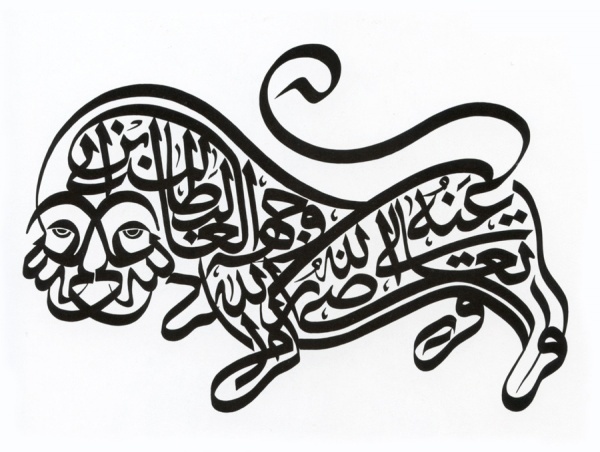 علي بن أبي طالب رضي الله تعالى عنه وكرم الله وجهه